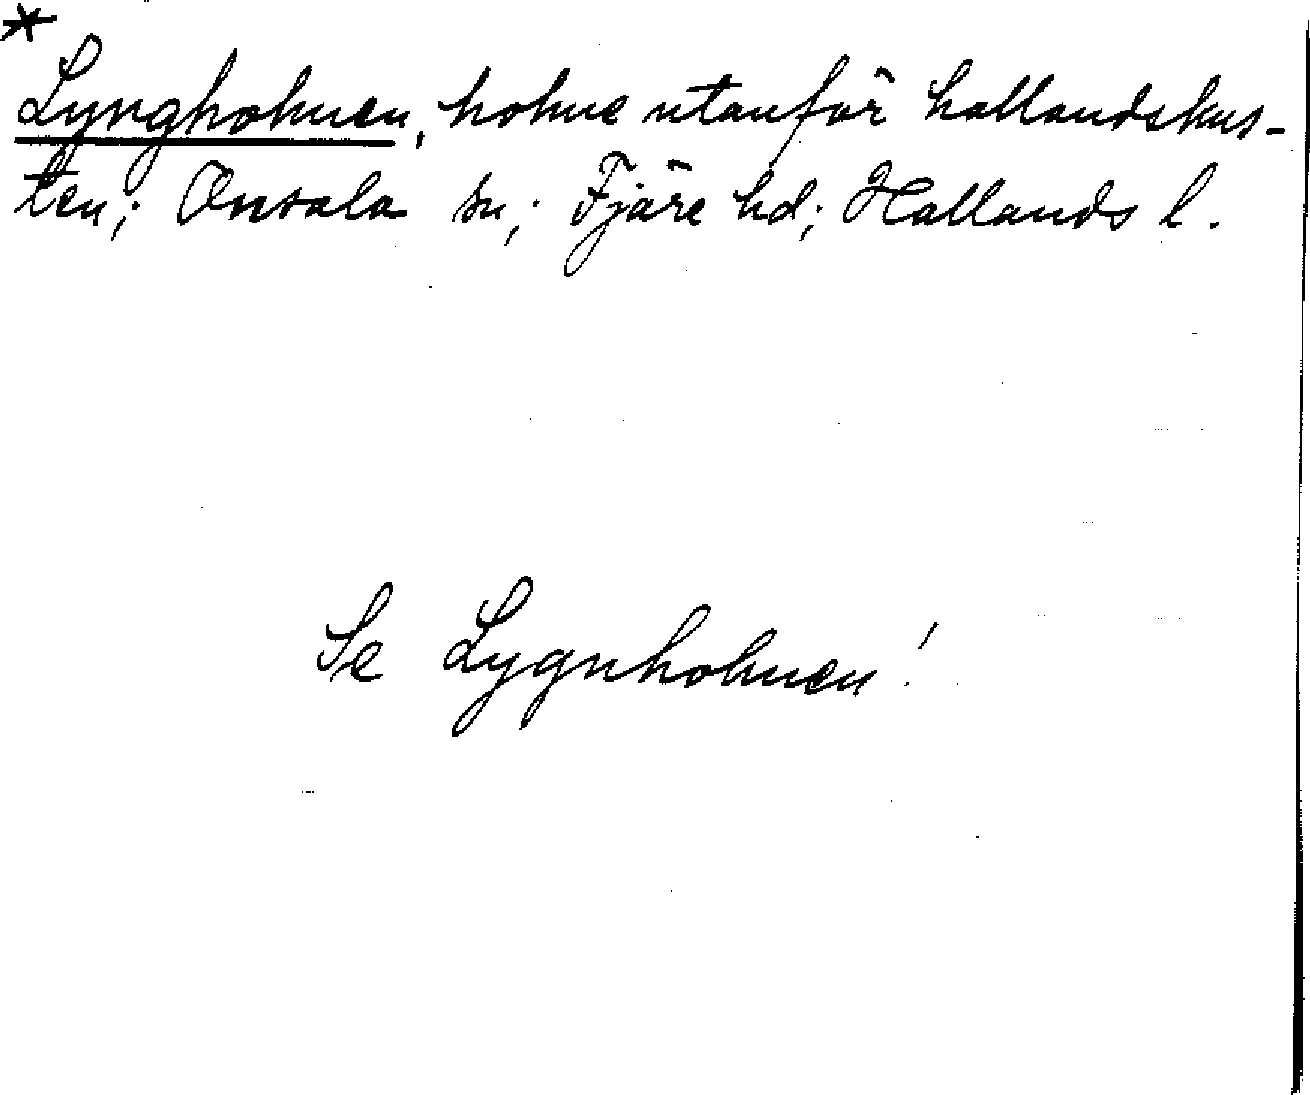 *
Lyngholmen, holme utanför hallandskus-
ten; Onsala sn; Fjäre hd; Hallands l.
Se Lygnholmen!